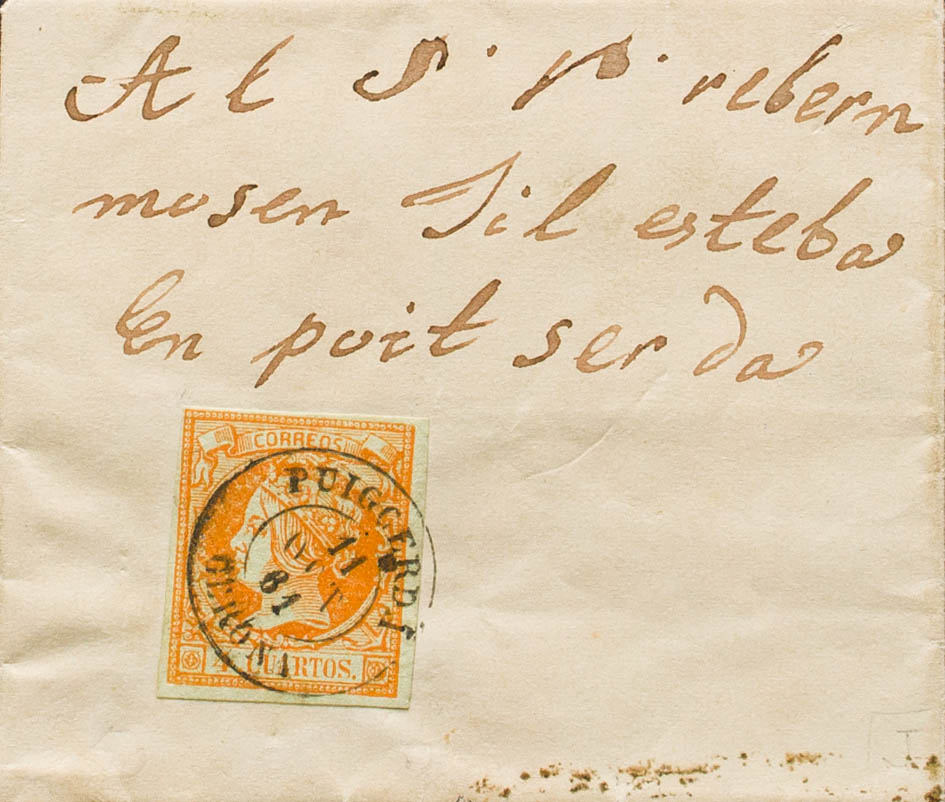 Al S. P. rebern
mosen Jil esteba
En poit ser da
CORREOS
PUIGCERDA
11
OCT
61
GERONA
4 CUARTOS.